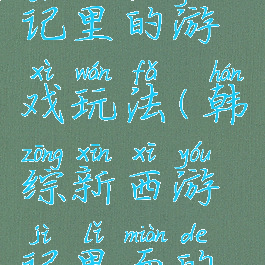 记里的游
xì wán fǎ hán
戏玩法(韩
zōng xīn xī yóu
综新西游
jì lǐ miàn de
记里面的